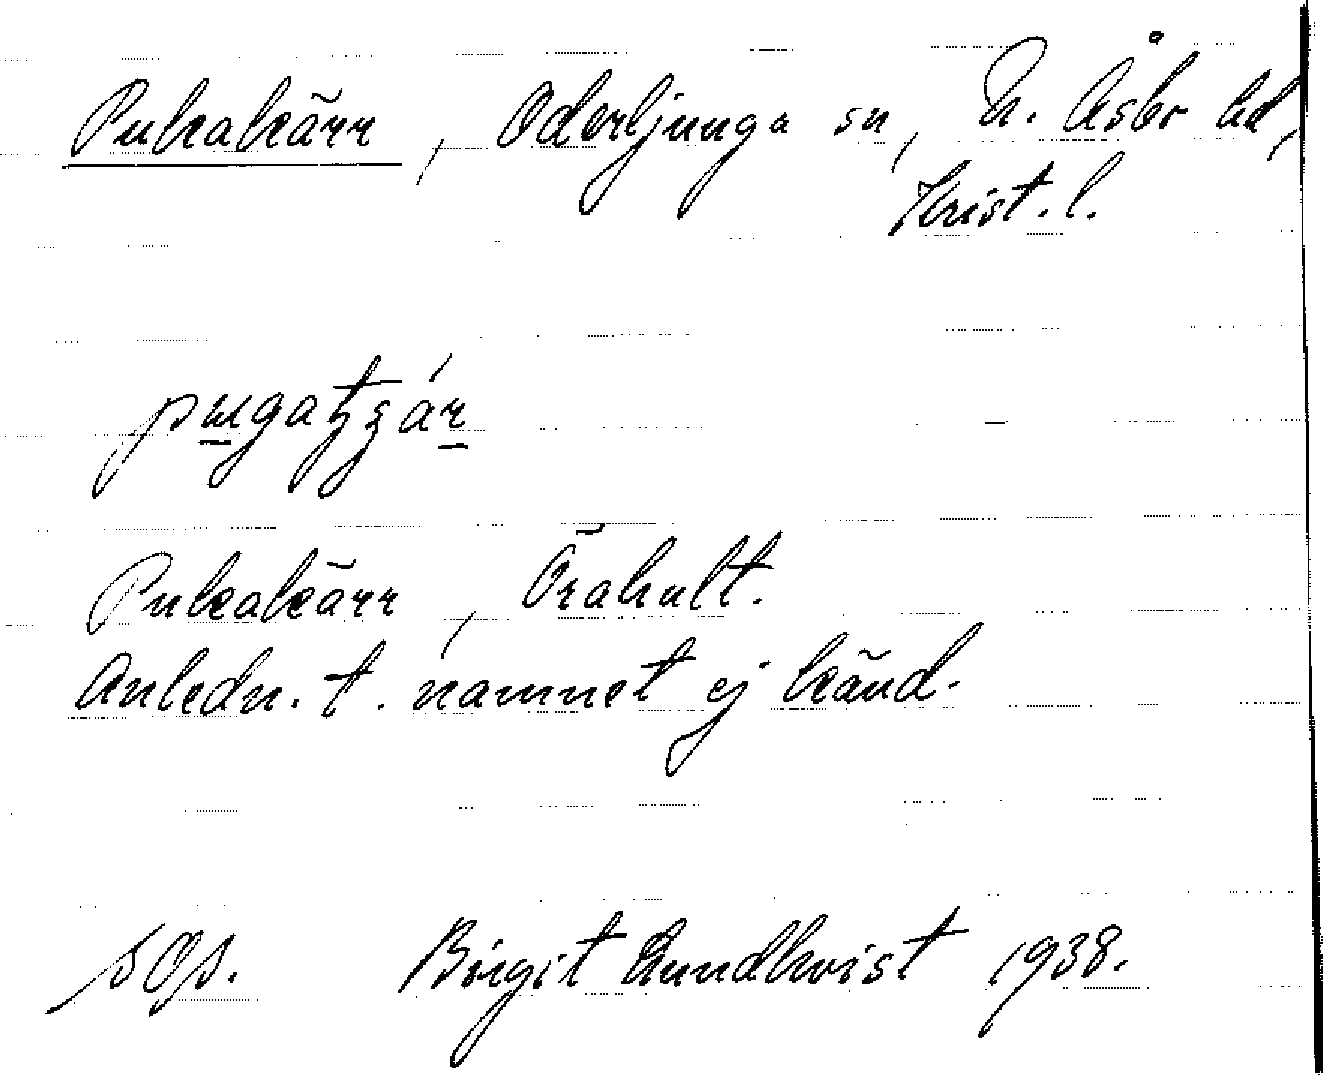 Pukakärr, Oderljunga sn, N. Åsbo hd,
Krist. l.
Pukakärr, Örahult.
Anledn. t. namnet ej känd.
Birgit Lundkvist 1938.